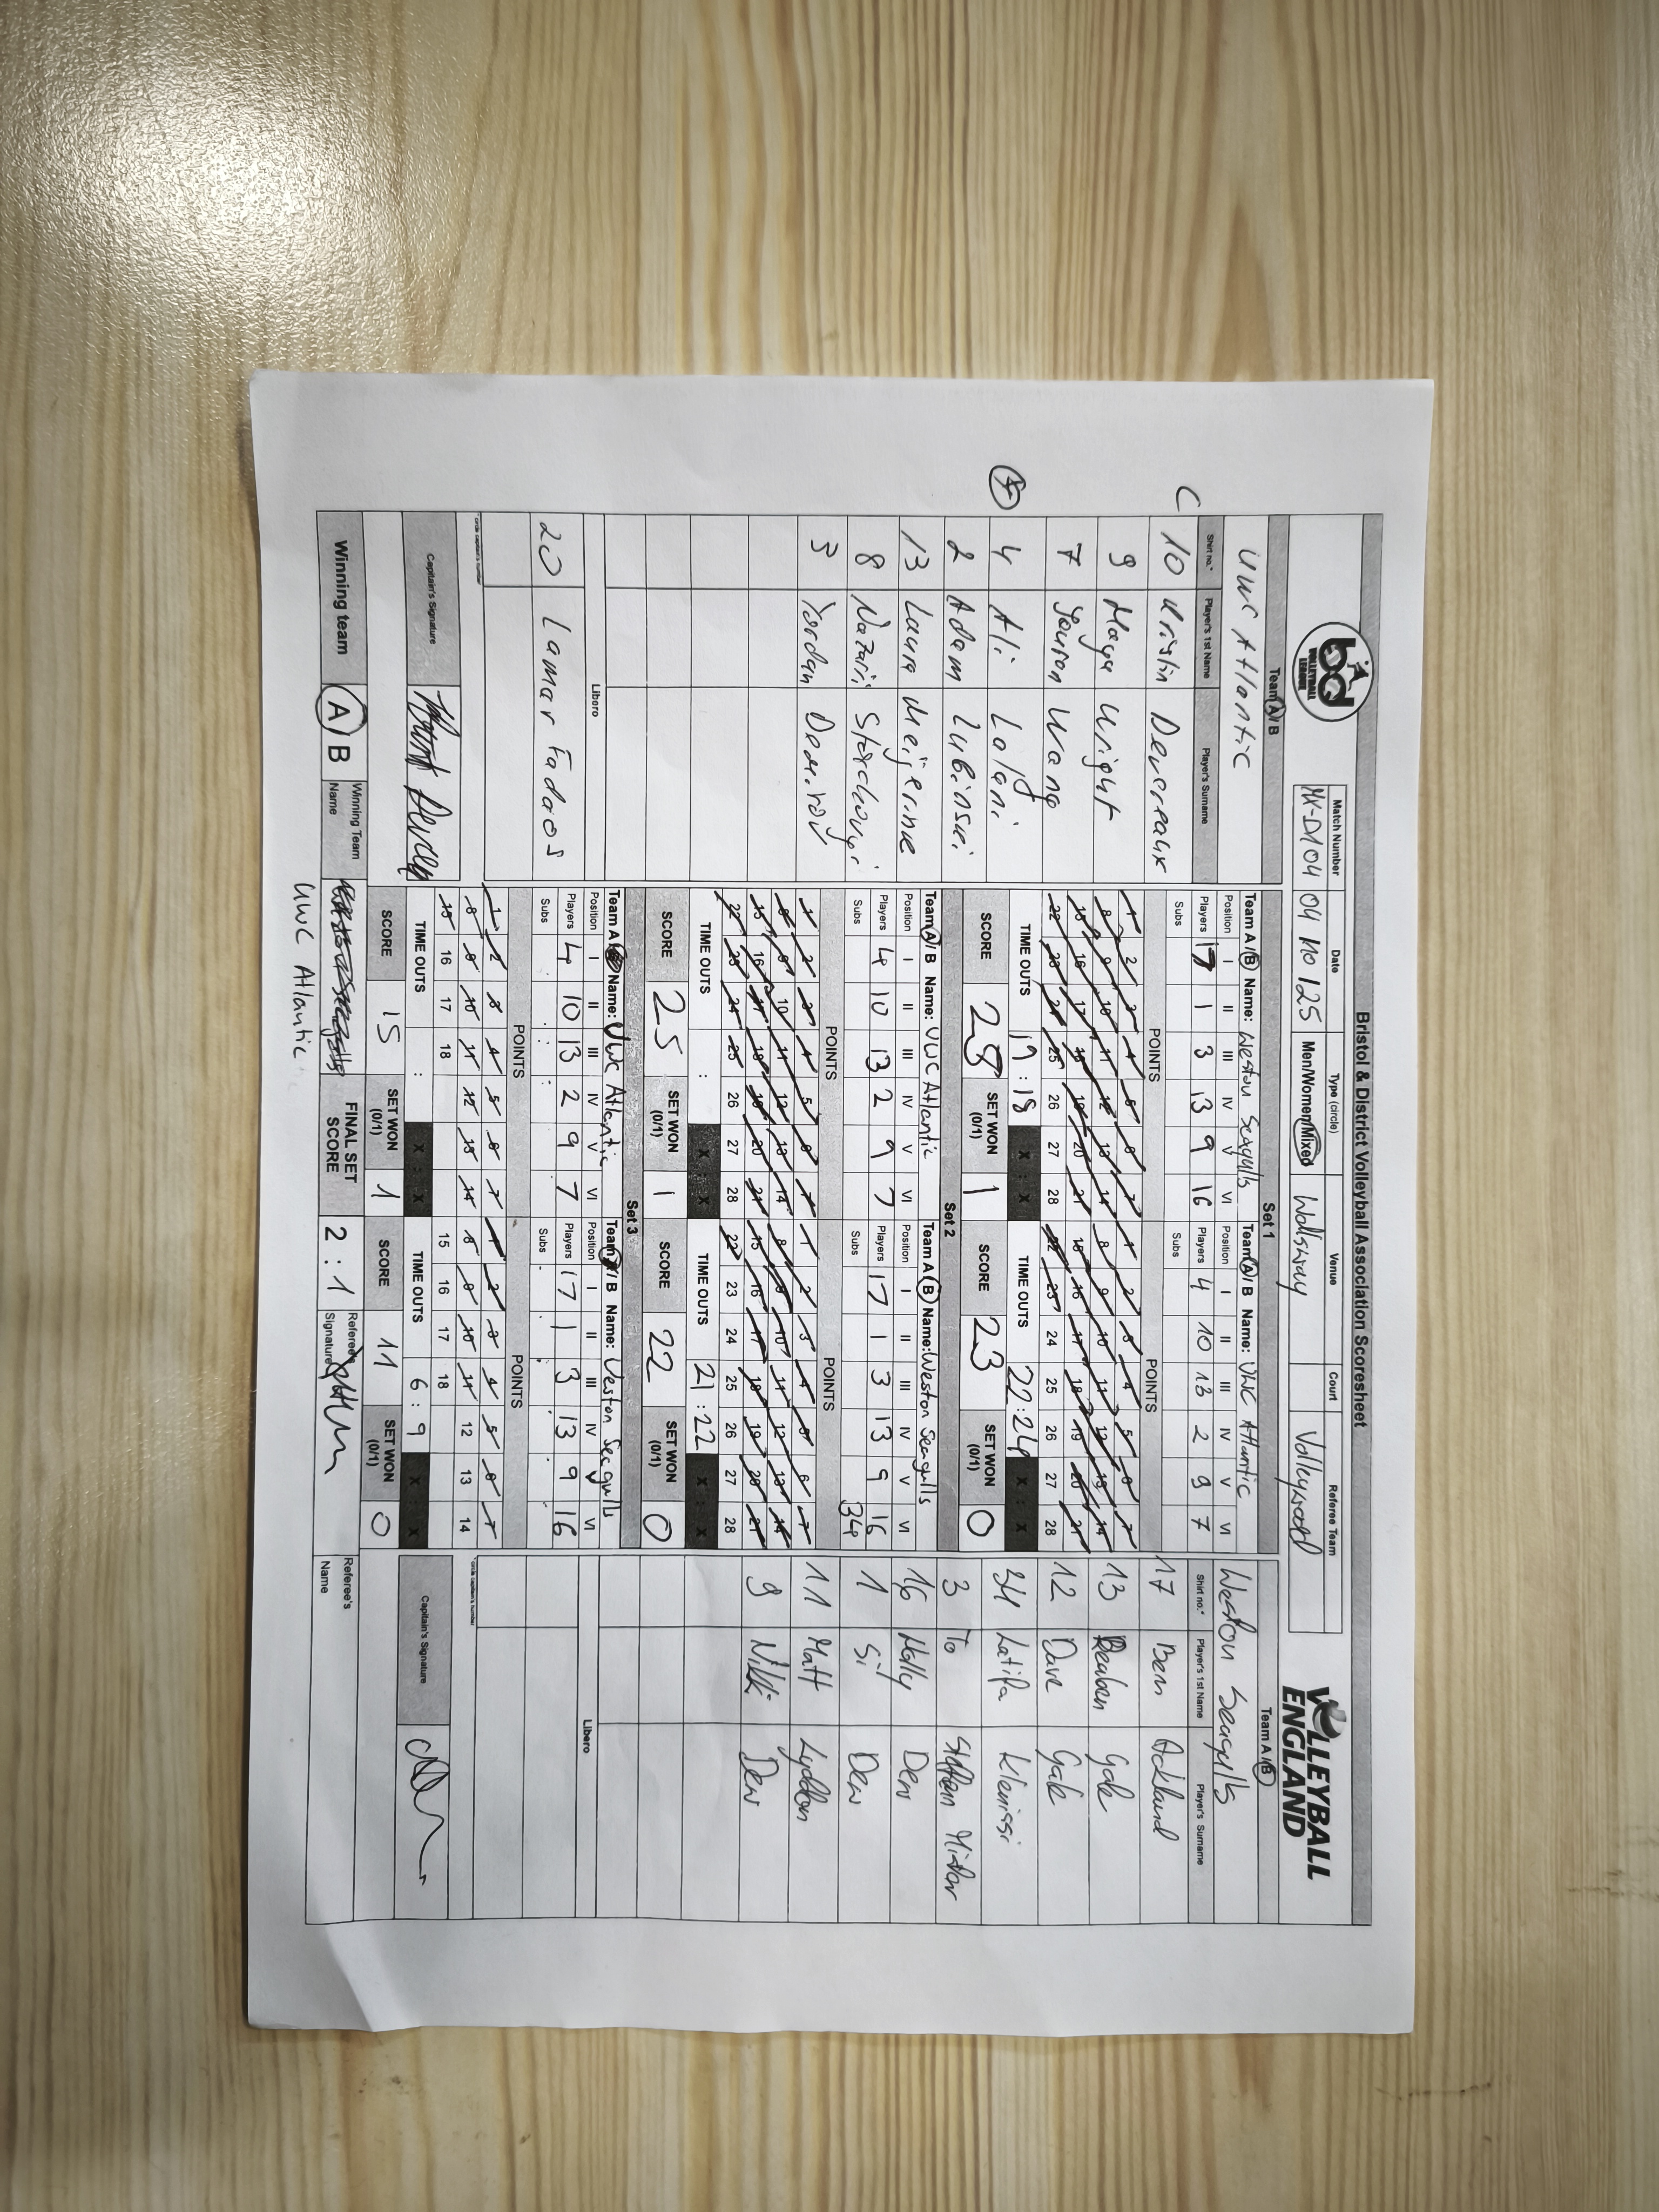 Bristol & District Volleyball Association Scoresheet
VOLLEYBALL LEAGUE
Match Number Date Type (circle) Venue Court Referee Team
MX-D104 04/10/25 Men/Women/Mixed Wallsway Volleywood
VOLLEYBALL
ENGLAND
Team A / B
UWC Atlantic
Shirt no.* Player's 1st Name Player's Surname
C 10 Kristin Devereaux
9 Maya Wright
7 Youran Wang
4 4 Ali Lalani
2 Adam Lubinski
13 Laura Meijerink
8 Nazarii
3 Yordan
Libero
20 Lamar Fadaos
*circle captain's number
Captain's Signature
Set 1
Team A / B Name: Weston Seagulls
Position I II III IV V VI
Players 17 1 3 13 9 16
Subs
POINTS
1 2 3 4 5 6 7
8 9 10 11 12 13 14
15 16 17 18 19 20 21
22 23 24 25 26 27 28
TIME OUTS 19 : 18 X : X
SCORE 25 SET WON (0/1) 1
Team A / B Name: UWC Atlantic
Position I II III IV V VI
Players 4 10 13 2 9 7
Subs
POINTS
1 2 3 4 5 6 7
8 9 10 11 12 13 14
15 16 17 18 19 20 21
22 23 24 25 26 27 28
TIME OUTS 22 : 24 X : X
SCORE 23 SET WON (0/1) 0
Set 2
Team A / B Name: UWC Atlantic
Position I II III IV V VI
Players 4 10 13 2 9 7
Subs
POINTS
1 2 3 4 5 6 7
8 9 10 11 12 13 14
15 16 17 18 19 20 21
22 23 24 25 26 27 28
TIME OUTS : X : X
SCORE 25 SET WON (0/1) 1
Team A / B Name: Weston Seagulls
Position I II III IV V VI
Players 17 1 3 13 9 16
Subs 34
POINTS
1 2 3 4 5 6 7
8 9 10 11 12 13 14
15 16 17 18 19 20 21
22 23 24 25 26 27 28
TIME OUTS 21 : 22 X : X
SCORE 22 SET WON (0/1) 0
Set 3
Team A / B Name: UWC Atlantic
Position I II III IV V VI
Players 4 10 13 2 9 7
Subs
POINTS
1 2 3 4 5 6 7
8 9 10 11 12 13 14
15 16 17 18
TIME OUTS : X : X
SCORE 15 SET WON (0/1) 1
Team A / B Name: Weston Seagulls
Position I II III IV V VI
Players 17 1 3 13 9 16
Subs
POINTS
1 2 3 4 5 6 7
8 9 10 11 12 13 14
15 16 17 18
TIME OUTS 6 : 9 X : X
SCORE 11 SET WON (0/1) 0
Team A / B
Weston Seagulls
Shirt no.* Player's 1st Name Player's Surname
17 Ben Ackland
13 Reuben Gale
12 Dave Gale
34 Latifa Klenissi
3 To
16 Holly Dew
1 Si Dew
11 Matt Lyddon
9 Nikki Dew
Libero
*circle captain's number
Captain's Signature
Winning team A / B Winning Team Name UWC Atlantic FINAL SET SCORE 2 : 1 Referee's Signature Referee's Name